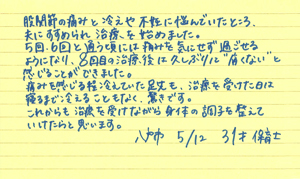 股関節の痛みと冷えや不性に悩んでいたところ、
夫にすすめられ治療を始めました。
5回、6回と通う頃には痛みを気にせず過ごせる
ようになり、8回目の治療後は久しぶりに"痛くない"と
感じることができました。
痛みを感じる程冷えていた足先も、治療を受けた日は
寝るまで冷えることもなく、驚きです。
これからも治療を受けながら身体の調子を整えて
いけたらと思います。
5/12 31才 保育士